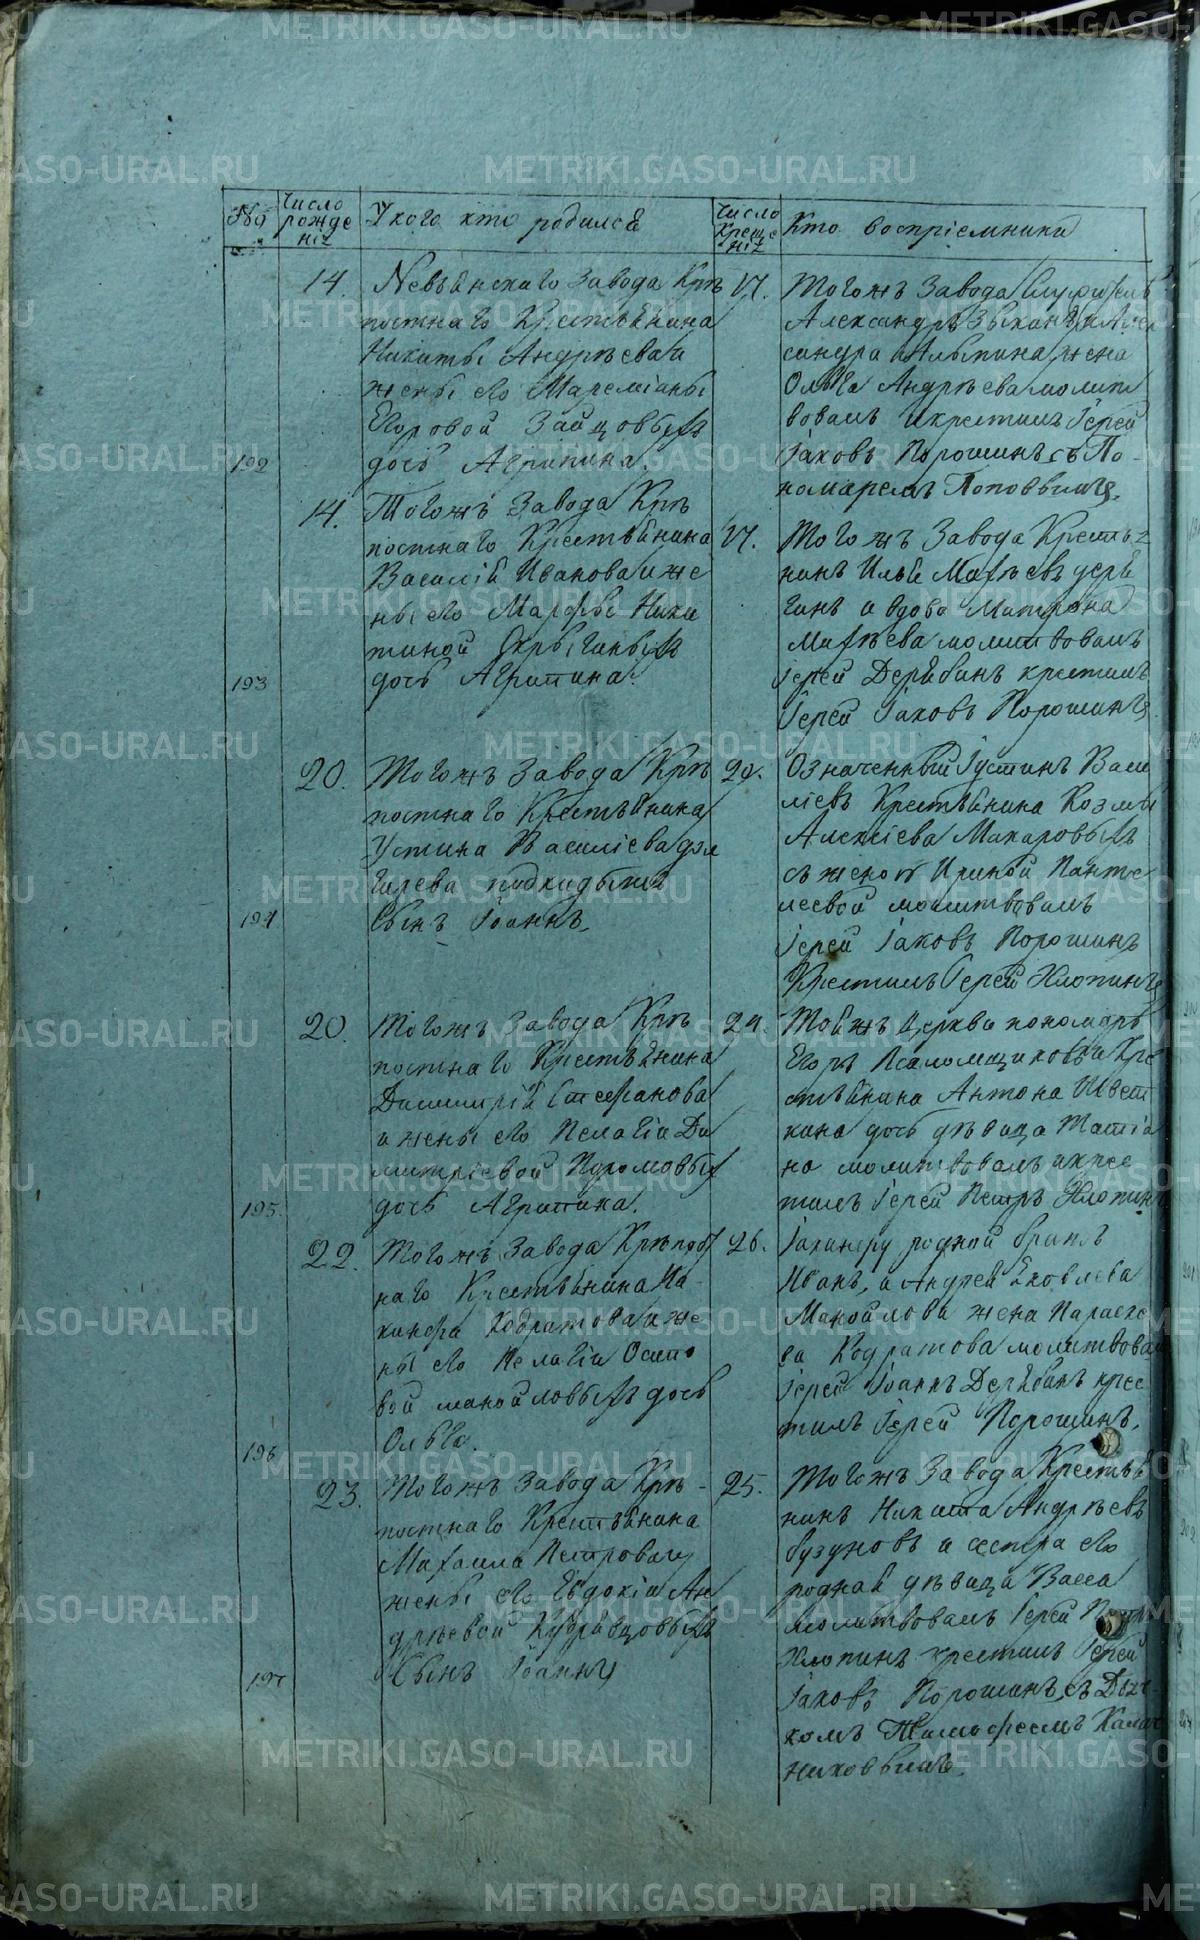 №
Число рожденія
У кого кто родился
Число крещенія
Кто воспріемники
192
14.
Невьянскаго завода крѣ
постнаго Крестьянина
Никиты Андрѣева и
жены его Маремiаны
Егоровой Зайцовыхъ
дочь Агрипина.
17.
Тогожъ завода служитель
Александръ
сандра жена
Ольга Андрѣева молит
вовалъ и крестилъ Іерей
Іаковъ Порошинъ съ По-
номаремъ Поповымъ.
193
14.
Тогожъ завода Крѣ
постнаго Крестьянина
Василiй Иванова и же
ны его Марфы Ники
тиной
дочь Агрипина.
17.
Тогожъ завода Крестья
нинъ Илья Матѣевъ деря
гинъ и вдова Матрона
Матѣева молитвовалъ
Іерей Дерябинъ крестилъ
Іерей Іаковъ Порошинъ
194
20.
Тогожъ завода Крѣ
постнаго Крестьянина
Устина Василіева дол
гирева подкидышъ
Сынъ Іоаннъ.
24.
Означенный Іустинъ Васи
ліевъ Крестьянина Козмы
Алексіева Макаровыхъ
съ женой Ириной Панте
леевой молитвовалъ
Іерей Іаковъ Порошинъ
Крестилъ Іерей Хлопинъ
195.
20.
Тогожъ завода Крѣ
постнаго Крестьянина
Димитрій Стефанова
и жены его Пелагіи Ди
митріевой
дочь Агрипина.
24.
Тояжъ Церкви пономарь
Егоръ Псаломщиковъ и Кре
стьянина Антона
кина дочь дѣвица Татiа
на молитвовалъ и крес
тилъ Іерей Петръ Хлопинъ
196
22.
Тогожъ завода Крѣпост
наго Крестьянина Иа
кинфа Кодратова и же
ны его Пелагіи Осипо
вой маноиловыхъ дочь
Ольга.
26.
Іакинфу родной братъ
Иванъ, и Андрей Яковлева
Маноилова жена Параске
ва Кодратова молитвовалъ
Іерей Іоаннъ Дерябинъ крес
тилъ Іерей Порошинъ.
197
23.
Тогожъ завода Крѣ-
постнаго Крестьянина
Михаила Петрова и
жены его Евдокіи Ан
дрѣевой Кудрявцовыхъ
Сынъ Іоаннъ
25.
Тогожъ завода Крестья
нинъ Никита Андрѣевъ
бузуновъ и сестра его
родная дѣвица Васса
молитвовалъ Іерей Петръ
Хлопинъ крестилъ Іерей
Іаковъ Порошинъ съ Дьяч-
комъ Тимофеемъ Калач
никовымъ.